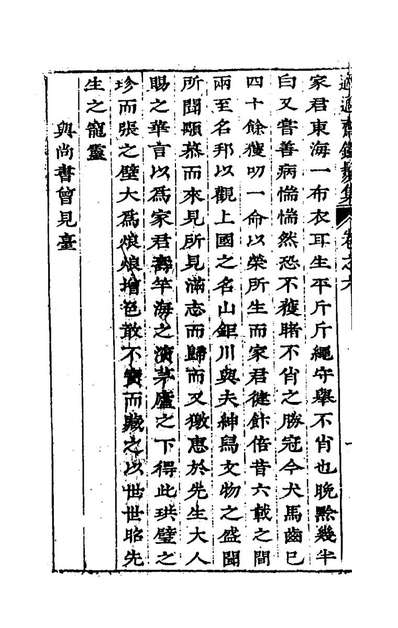 家君東海一布衣耳生平斤斤繩守舉不肖也晚黙幾半
白又嘗善病惴惴然恐不獲睹不肖之勝冠今犬馬齒已
四十餘獲叨一命以榮所生而家君健飰倍昔六載之間
兩至名邦以觀上國之名山鉅川與夫紳舄文物之盛聞
所聞順慕而來見所見滿志而歸而又徼惠於先生大人
賜之華言以爲家君壽竿海之濱茅廬之下得此珙璧之
珍而張之壁大爲烺烺增色敢不寶而藏之以世世昭先
生之寵靈
與尚書曾見臺